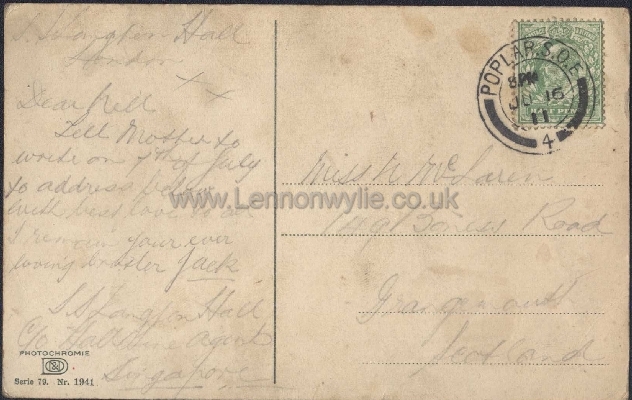 S.S. Langton Hall
London
x x
Dear Nell
Tell Mother to
write on 7th of July
to address below
with best love to all
I remain your ever
loving brother Jack
S.S. Langton Hall
C/o Hall Line Agents
Singapore
PHOTOCHROMIE
Serie 79. Nr. 1941
POPLAR. S.O.E
8 PM
11
4
Miss N McLaren
Boness Road
Grangemouth
Scotland
www.Lennonwylie.co.uk